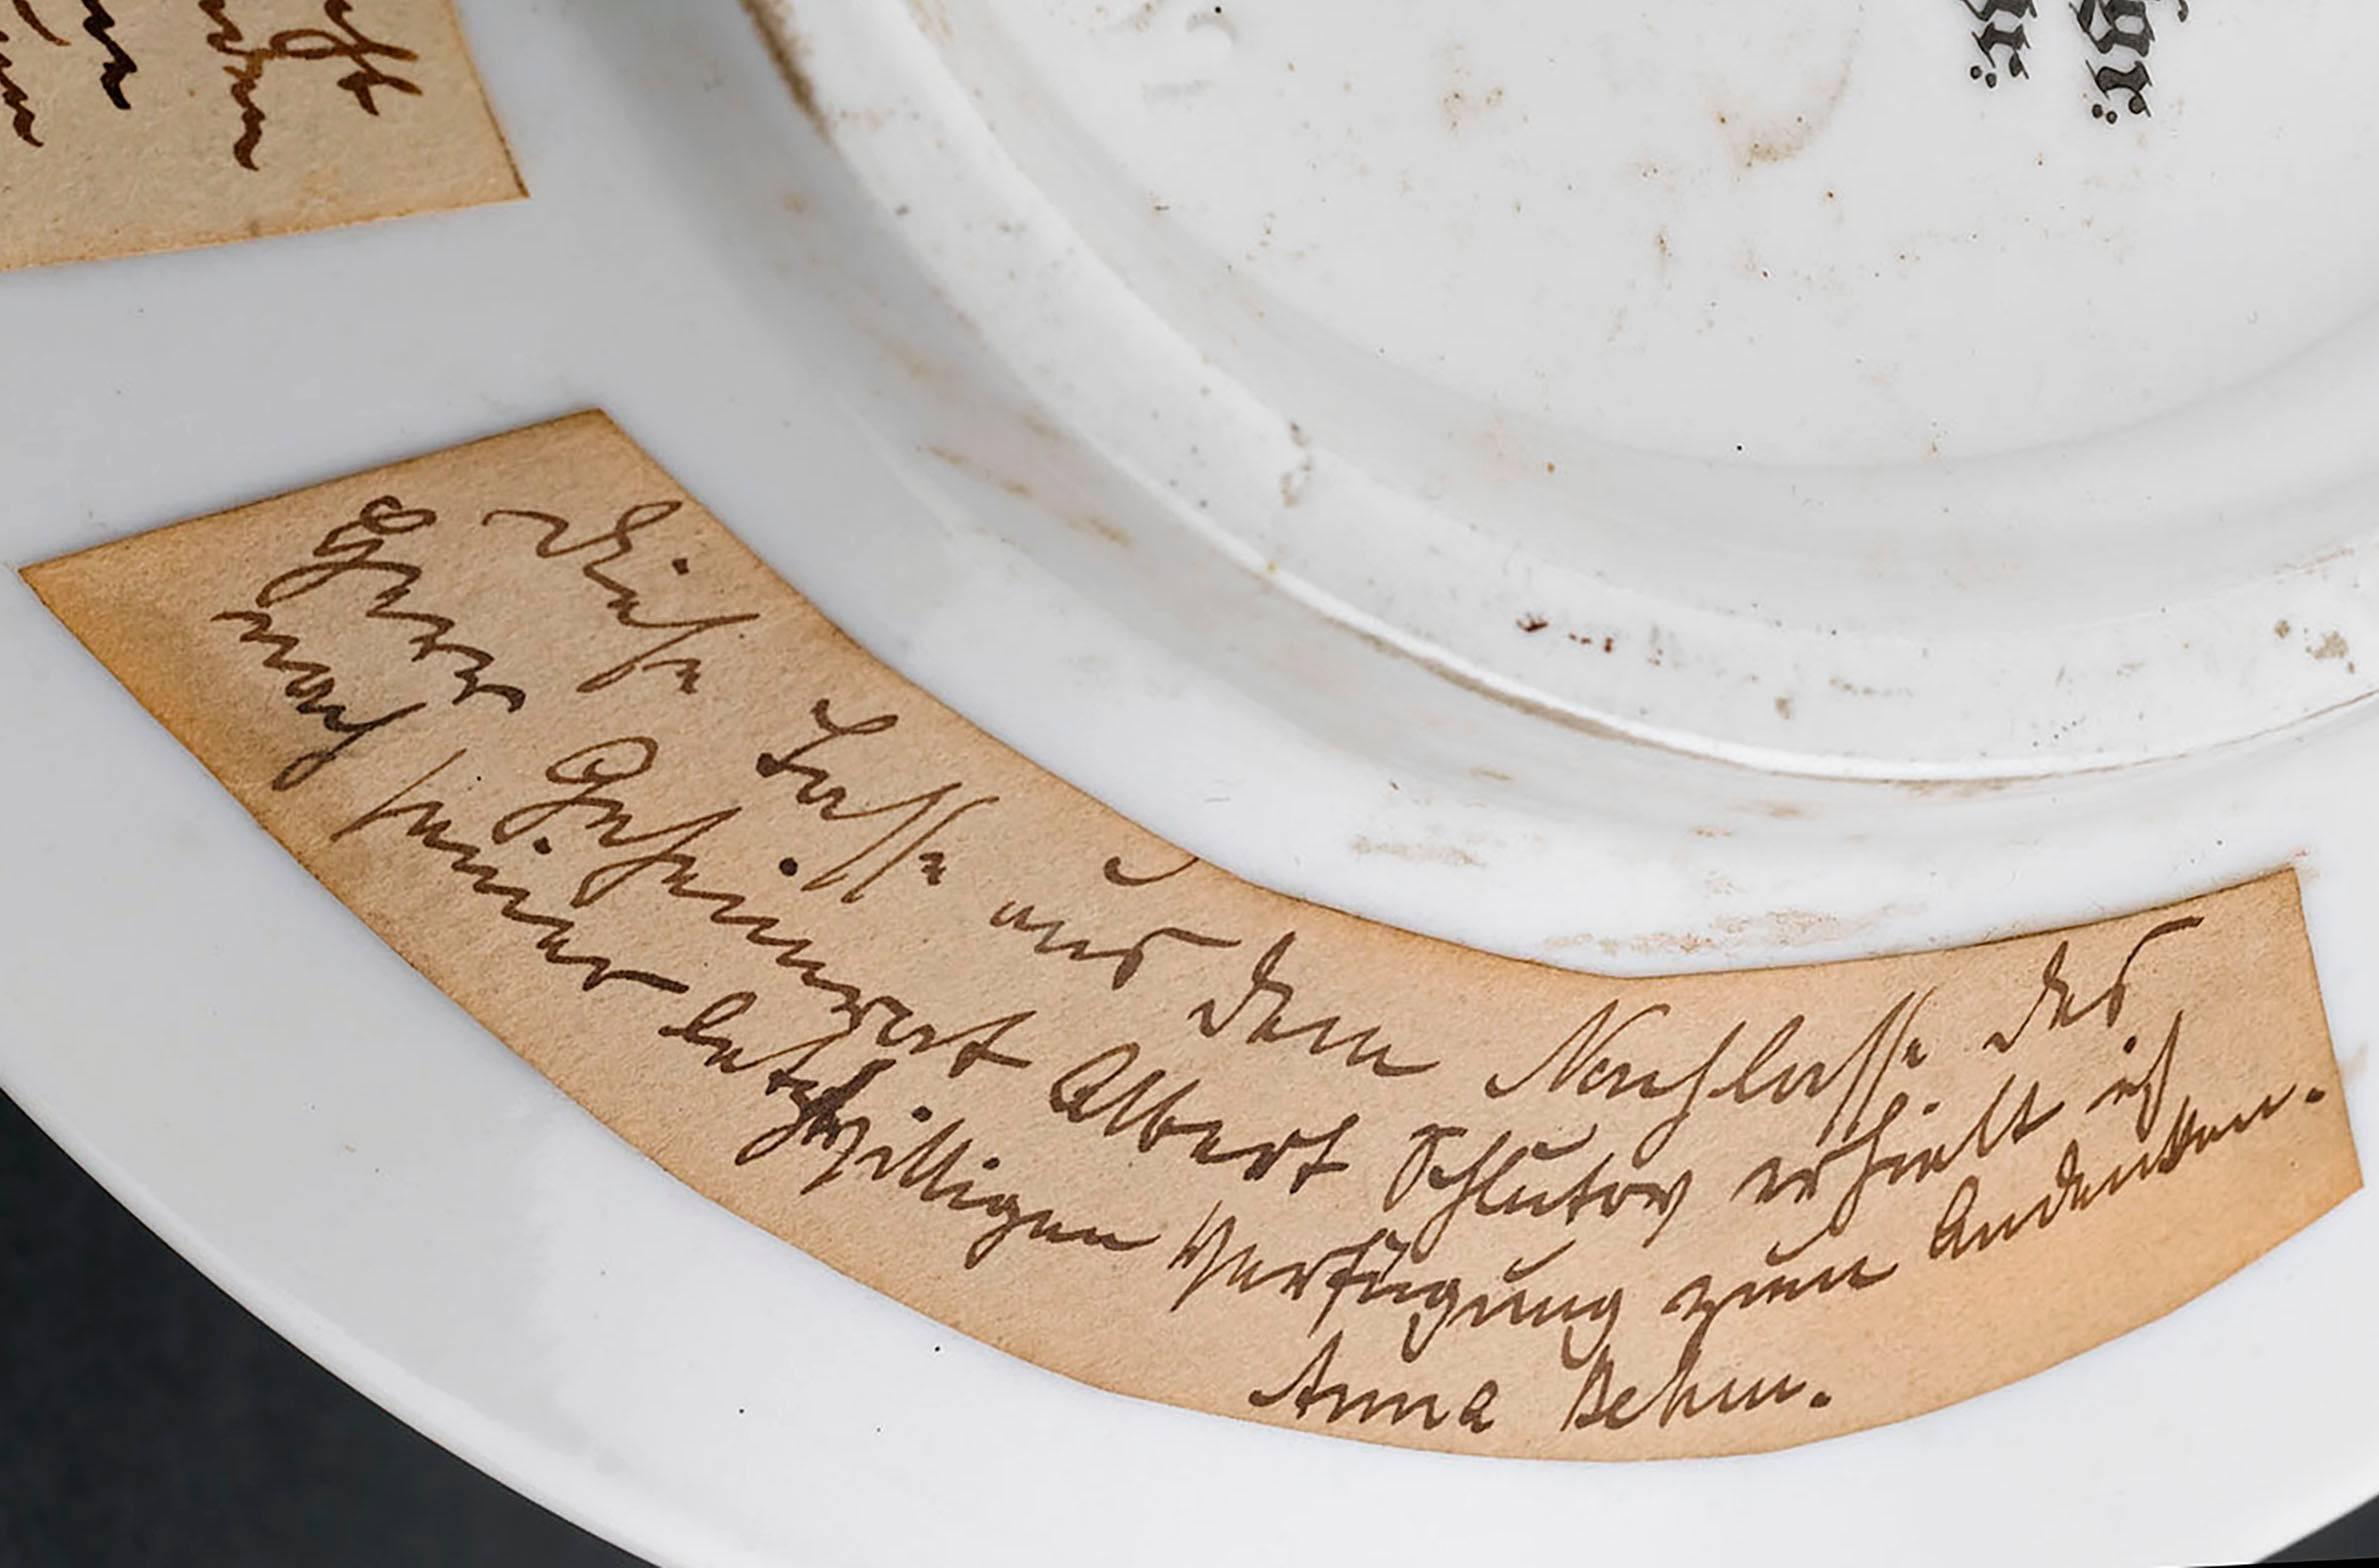 Diese Tasse aus dem Nachlasse des
Herrn Geheimrat Albert Schlutow erhielt ich
nach seiner letztwilligen Verfügung zum Andenken.
Anna Behm.